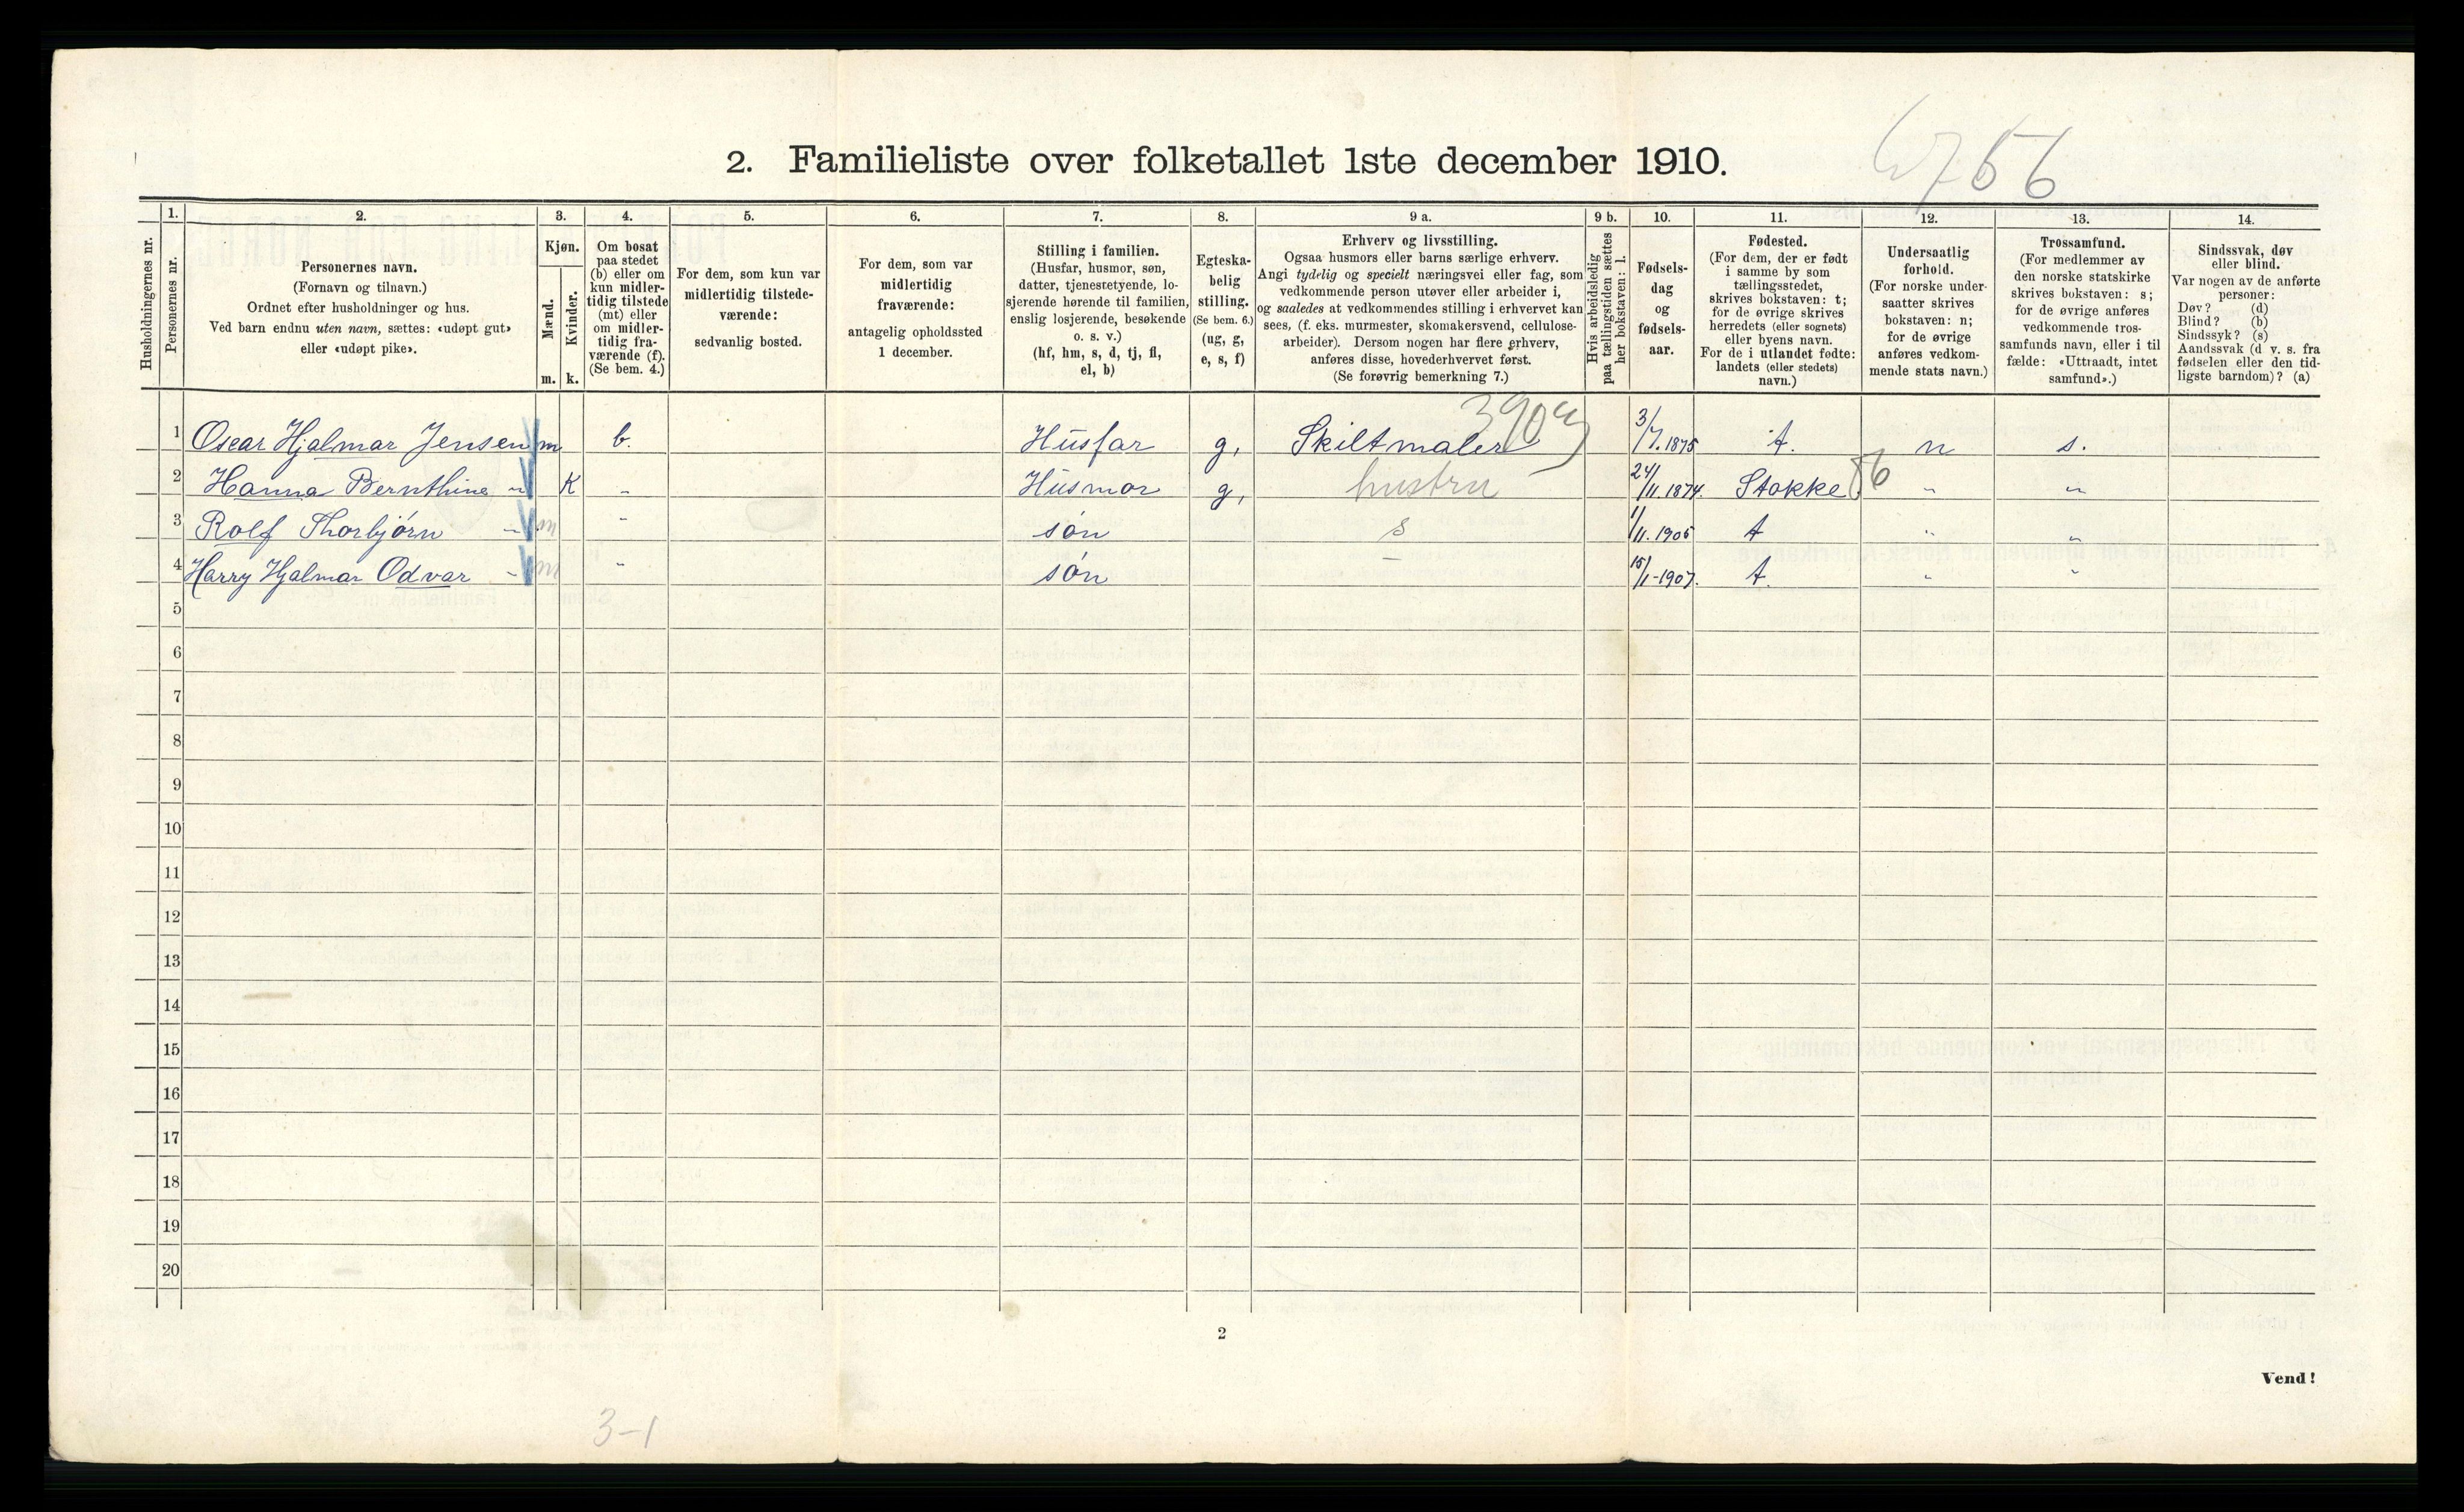 6756
2. Familieliste over folketallet 1ste december 1910.
Husholdningernes nr.
1.
Personernes nr.
2.
Personernes navn.
(Fornavn og tilnavn.)
Ordnet efter husholdninger og hus.
Ved barn endnu uten navn, sættes: «udøpt gut»
eller «udøpt pike».
3.
Kjøn.
Mænd.
Kvinder.
m. k.
4.
Om bosat
paa stedet
(b) eller om
kun midler-
tidig tilstede
(mt) eller
om midler-
tidig fra-
værende (f).
(Se bem. 4.)
5.
For dem, som kun var
midlertidig tilstede-
værende:
sedvanlig bosted.
6.
For dem, som var
midlertidig
fraværende:
antagelig opholdssted
1 december.
7.
Stilling i familien.
(Husfar, husmor, søn,
datter, tjenestetyende, lo-
sjerende hørende til familien,
enslig losjerende, besøkende
o. s. v.)
(hf, hm, s, d, tj, fl,
el, b)
8.
Egteska-
belig
stilling.
(Se bem. 6.)
(ug, g,
e, s, f)
9 a.
Erhverv og livsstilling.
Ogsaa husmors eller barns særlige erhverv.
Angi tydelig og specielt næringsvei eller fag, som
vedkommende person utøver eller arbeider i,
og saaledes at vedkommendes stilling i erhvervet kan
sees, (f. eks. murmester, skomakersvend, cellulose-
arbeider). Dersom nogen har flere erhverv,
anføres disse, hovederhvervet først.
(Se forøvrig bemerkning 7.)
9 b.
Hvis arbeidsledig
paa tællingstiden sættes
her bokstaven: l.
10.
Fødsels-
dag
og
fødsels-
aar.
11.
Fødested.
(For dem, der er født
i samme by som
tællingsstedet,
skrives bokstaven: t;
for de øvrige skrives
herredets (eller sognets)
eller byens navn.
For de i utlandet fødte:
landets (eller stedets)
navn.)
12.
Undersaatlig
forhold.
(For norske under-
saatter skrives
bokstaven: n;
for de øvrige
anføres vedkom-
mende stats navn.)
13.
Trossamfund.
(For medlemmer av
den norske statskirke
skrives bokstaven: s;
for de øvrige anføres
vedkommende tros-
samfunds navn, eller i til
fælde: «Uttraadt, intet
samfund».)
14.
Sindssvak, døv
eller blind.
Var nogen av de anførte
personer:
Døv? (d)
Blind? (b)
Sindssyk? (s)
Aandssvak (d v. s. fra
fødselen eller den tid-
ligste barndom)? (a)
1 Oscar Hjalmar Jensen m b. Husfar g, Skiltmaler 3/7.1875 t. n s.
2 Hanna Bernthine " K " Husmor g, hustru 24/11.1874. Stokke. " "
3 Rolf Thorbjörn " m " són s 1/11.1905 t " "
4 Harry Hjalmar Odvar " m " són – 15/1-1907. t. " "
5
6
7
8
9
10
11
12
13
14
15
16
17
18
19
20
2
Vend!
3-1